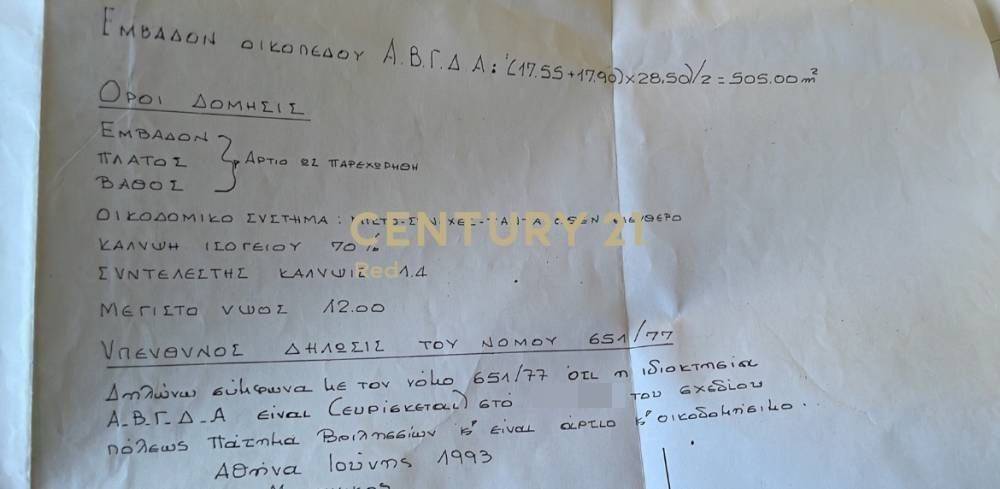 ΕΜΒΑΔΟΝ ΟΙΚΟΠΕΔΟΥ Α.Β.Γ.Δ Α: (17.55+17.90)×28.50/2 = 505.00 m²
ΟΡΟΙ ΔΟΜΗΣΙΣ
ΕΜΒΑΔΟΝ
ΠΛΑΤΟΣ
ΒΑΘΟΣ
ΑΡΤΙΟ ΩΣ ΠΑΡΕΧΩΡΗΘΗ
ΟΙΚΟΔΟΜΙΚΟ ΣΥΣΤΗΜΑ:
CENTURY 21
Red
ΚΑΛΥΨΗ ΙΣΟΓΕΙΟΥ 70%
ΣΥΝΤΕΛΕΣΤΗΣ ΚΑΛΥΨΙΣ 1.4
ΜΕΓΙΣΤΟ ΥΨΟΣ 12.00
ΥΠΕΥΘΥΝΟΣ ΔΗΛΩΣΙΣ ΤΟΥ ΝΟΜΟΥ 651/77
Δηλώνω σύμφωνα με τον νόμο 651/77 ότι η ιδιοκτησία
Α.Β.Γ.Δ.Α είναι (ευρίσκεται) στό του σχεδίου
πόλεως Πάτημα Βριλησσίων κ' είναι άρτιο κ' οικοδομήσιμο..
Αθήνα Ιούνης 1993